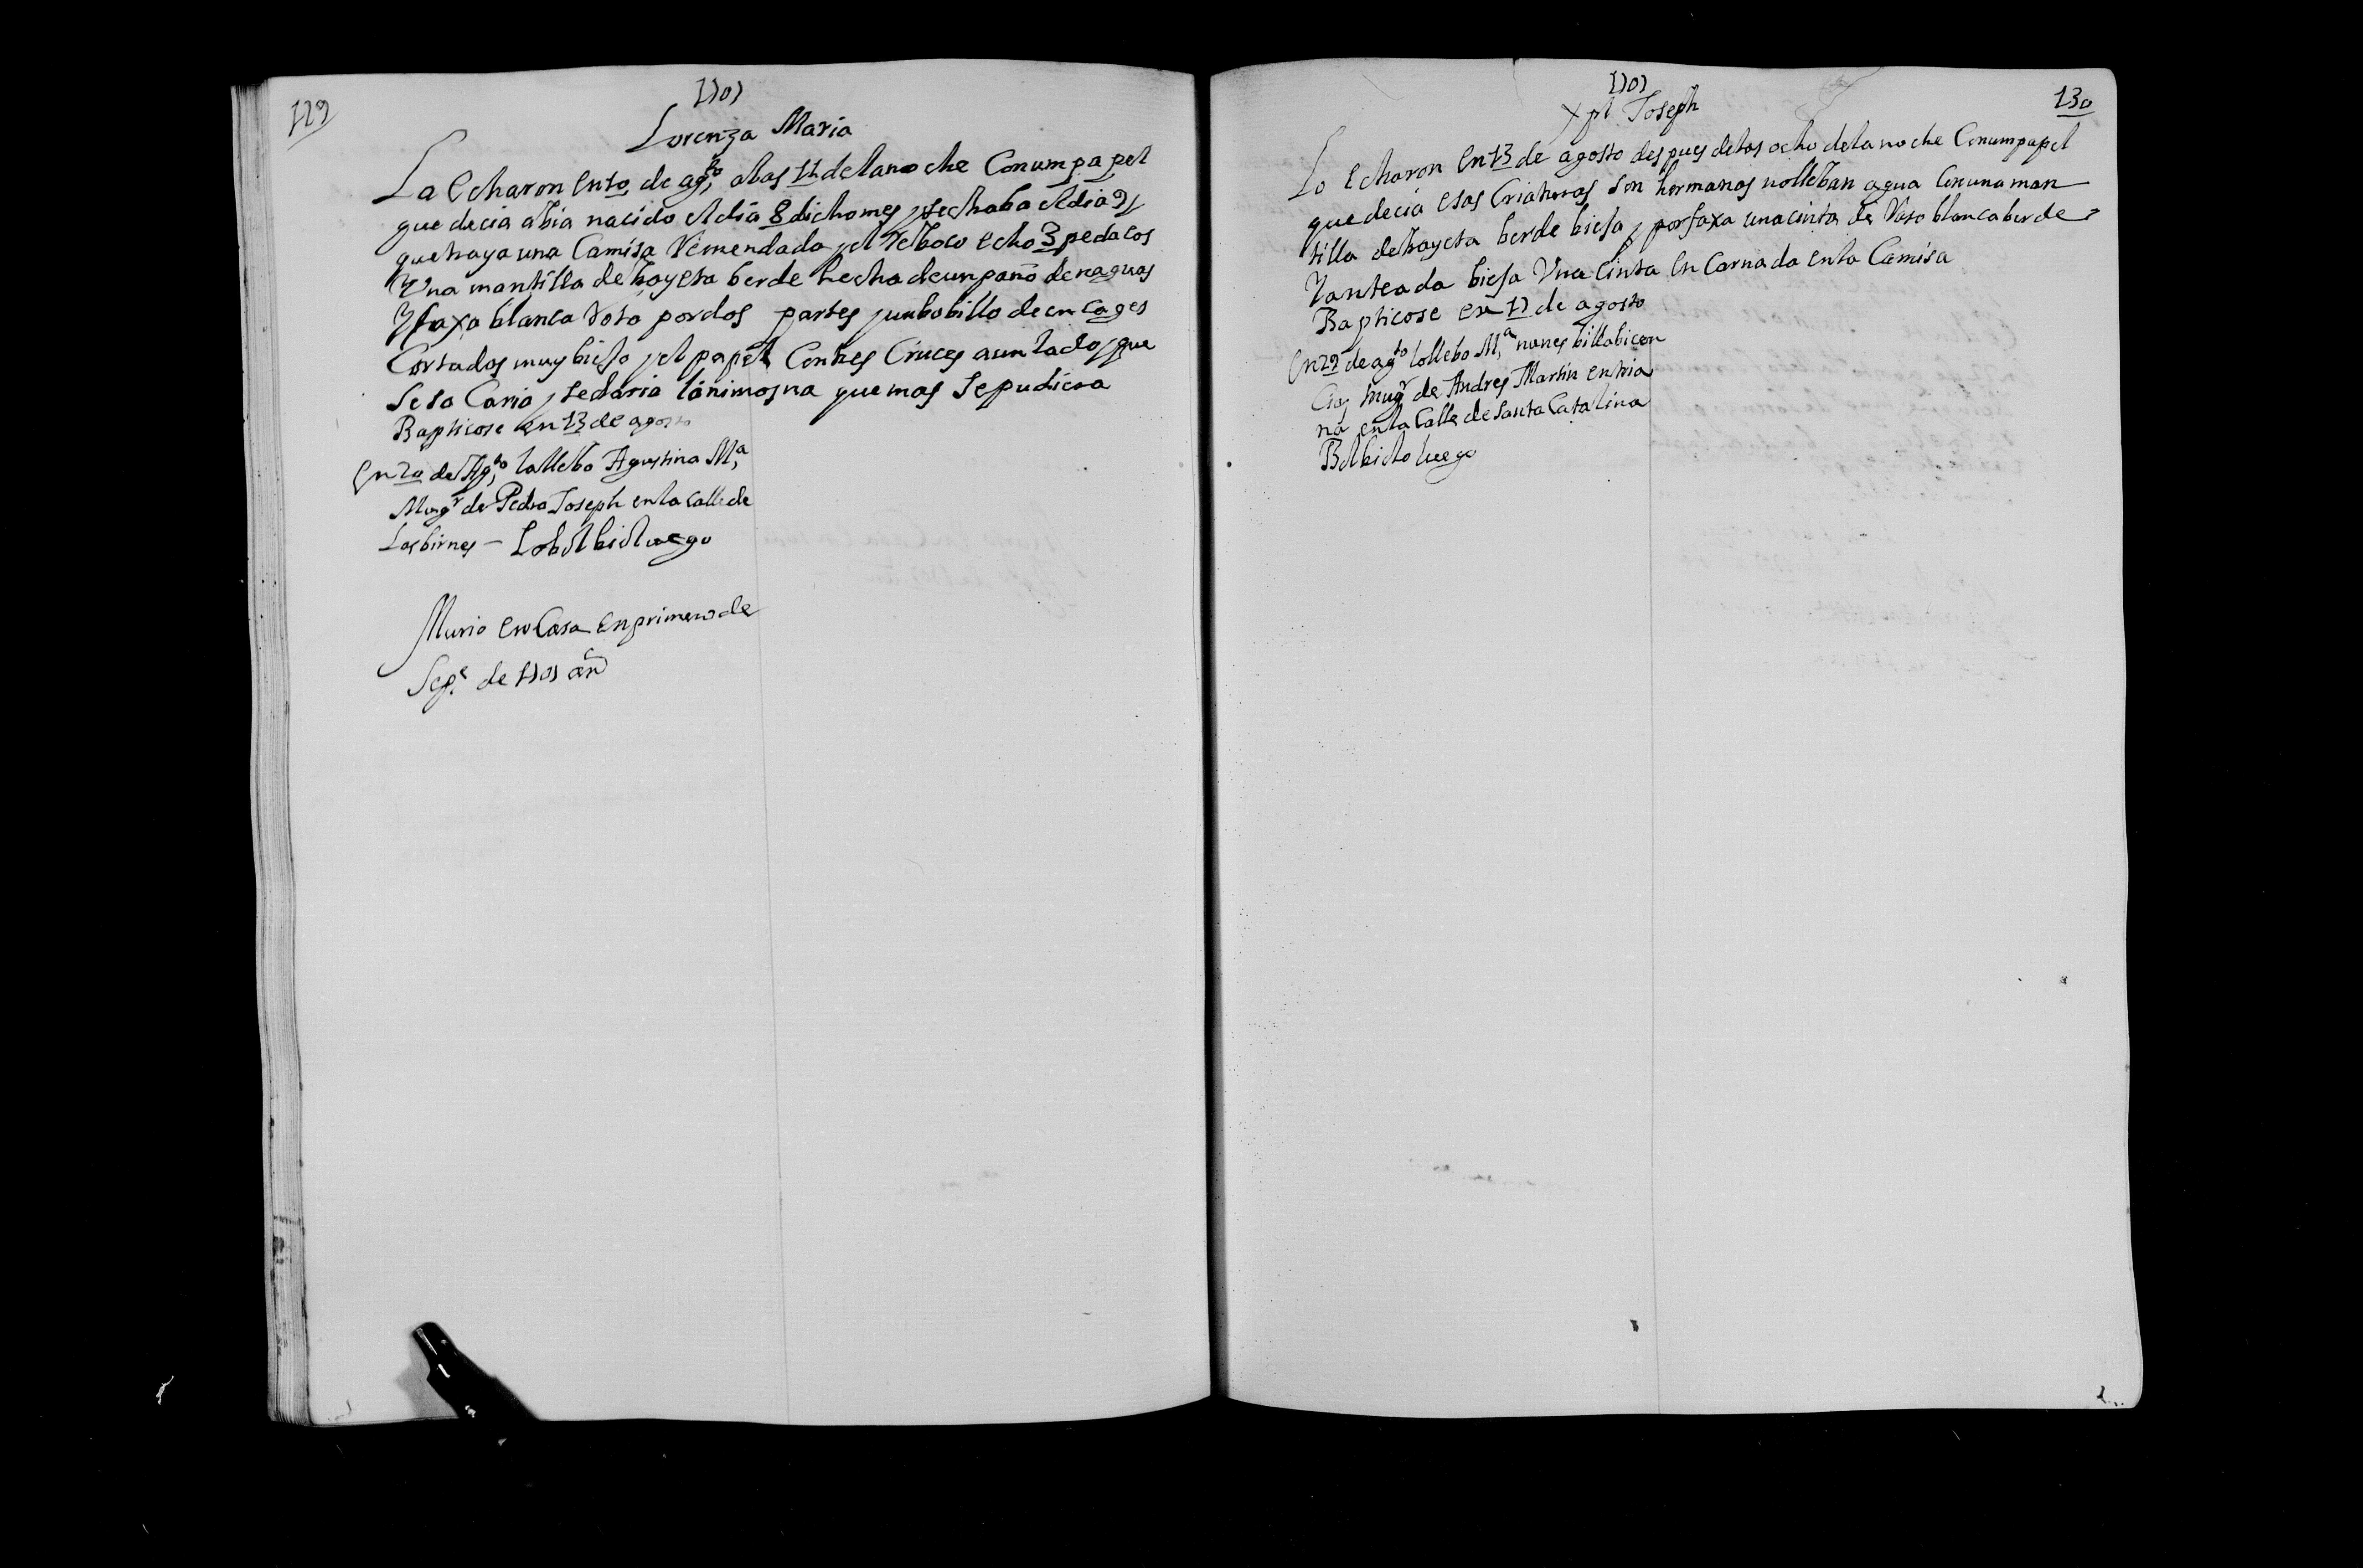 129
1707
Lorenza Maria
La echaron en 10 de ag.to a las 11 de la noche Con um papel
que decia abia nacido el dia 8 dicho mes y se echaba el dia 9 y
que traya una Camisa Remendada y el Reboço echo 3 pedaços
Y Una mantilla de bayeta berde hecha de un paño de naguas
Y faxa blanca Rota por dos partes y un bobillo de encages
Cortados muy biejo y el papel Con tres Cruces a un lado y que
Se sa Caria y se daria la nimosna que mas se pudiera
Bapticose en 13 de agosto
En 20 de Ag.to la llebo Agustina M.a
Mug.r de Pedro Joseph en la calle de
Los birnes - Lobolbio luego
Murio en Casa en primero de
Sep.e de 1707 an
1707
Xpl Joseph
130
Lo echaron en 13 de agosto despues de las ocho de la noche Con um papel
que decia esas Criaturas son hermanas no lleban agua Con una man
tilla de bayeta berde bieja y por faxa una cinta de Raso blanca berde
Ranteada bieja Una Cinta en Carnada en la Camisa
Bapticose en 17 de agosto
En 29 de ag.to lo llebo M.a nunes billabicen
Cia, mug.r de Andres Martin en tria
na en la Calle de Santa Catalina
Bolbiolo luego